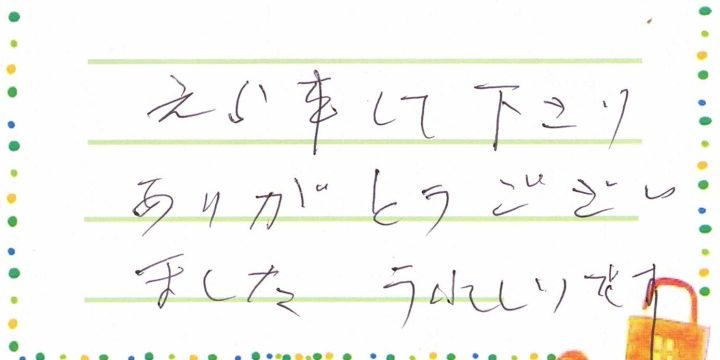 事して下さり
ありがとうござい
ました うれしいです